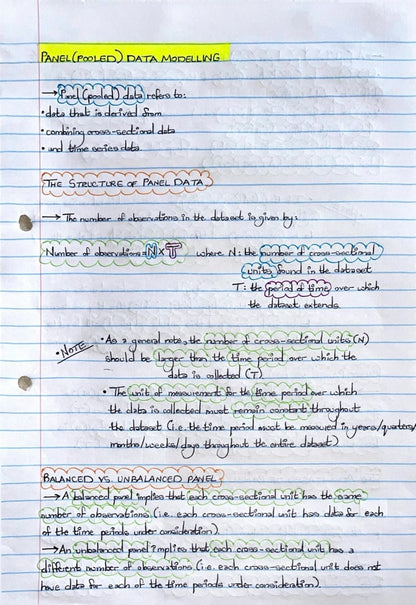 PANEL (POOLED) DATA MODELLING
→ Panel (pooled) data refers to:
• data that is derived from
• combining cross-sectional data
• and time series data.
THE STRUCTURE OF PANEL DATA
→ The number of observations in the dataset is given by:
Number of observations = N × T where N: the number of cross-sectional
units found in the dataset
T: the period of time over which
the dataset extends.
• NOTE • As a general note, the number of cross-sectional units (N)
should be larger than the time period over which the
data is collected (T)
• The unit of measurement for the time period over which
the data is collected must remain constant throughout
the dataset (i.e. the time period must be measured in years/quarters/
months/weeks/days throughout the entire dataset)
BALANCED VS. UNBALANCED PANEL
→ A balanced panel implies that each cross-sectional unit has the same
number of observations (i.e. each cross-sectional unit has data for each
of the time periods under consideration).
→ An unbalanced panel implies that each cross-sectional unit has a
different number of observations (i.e. each cross-sectional unit does not
have data for each of the time periods under consideration).